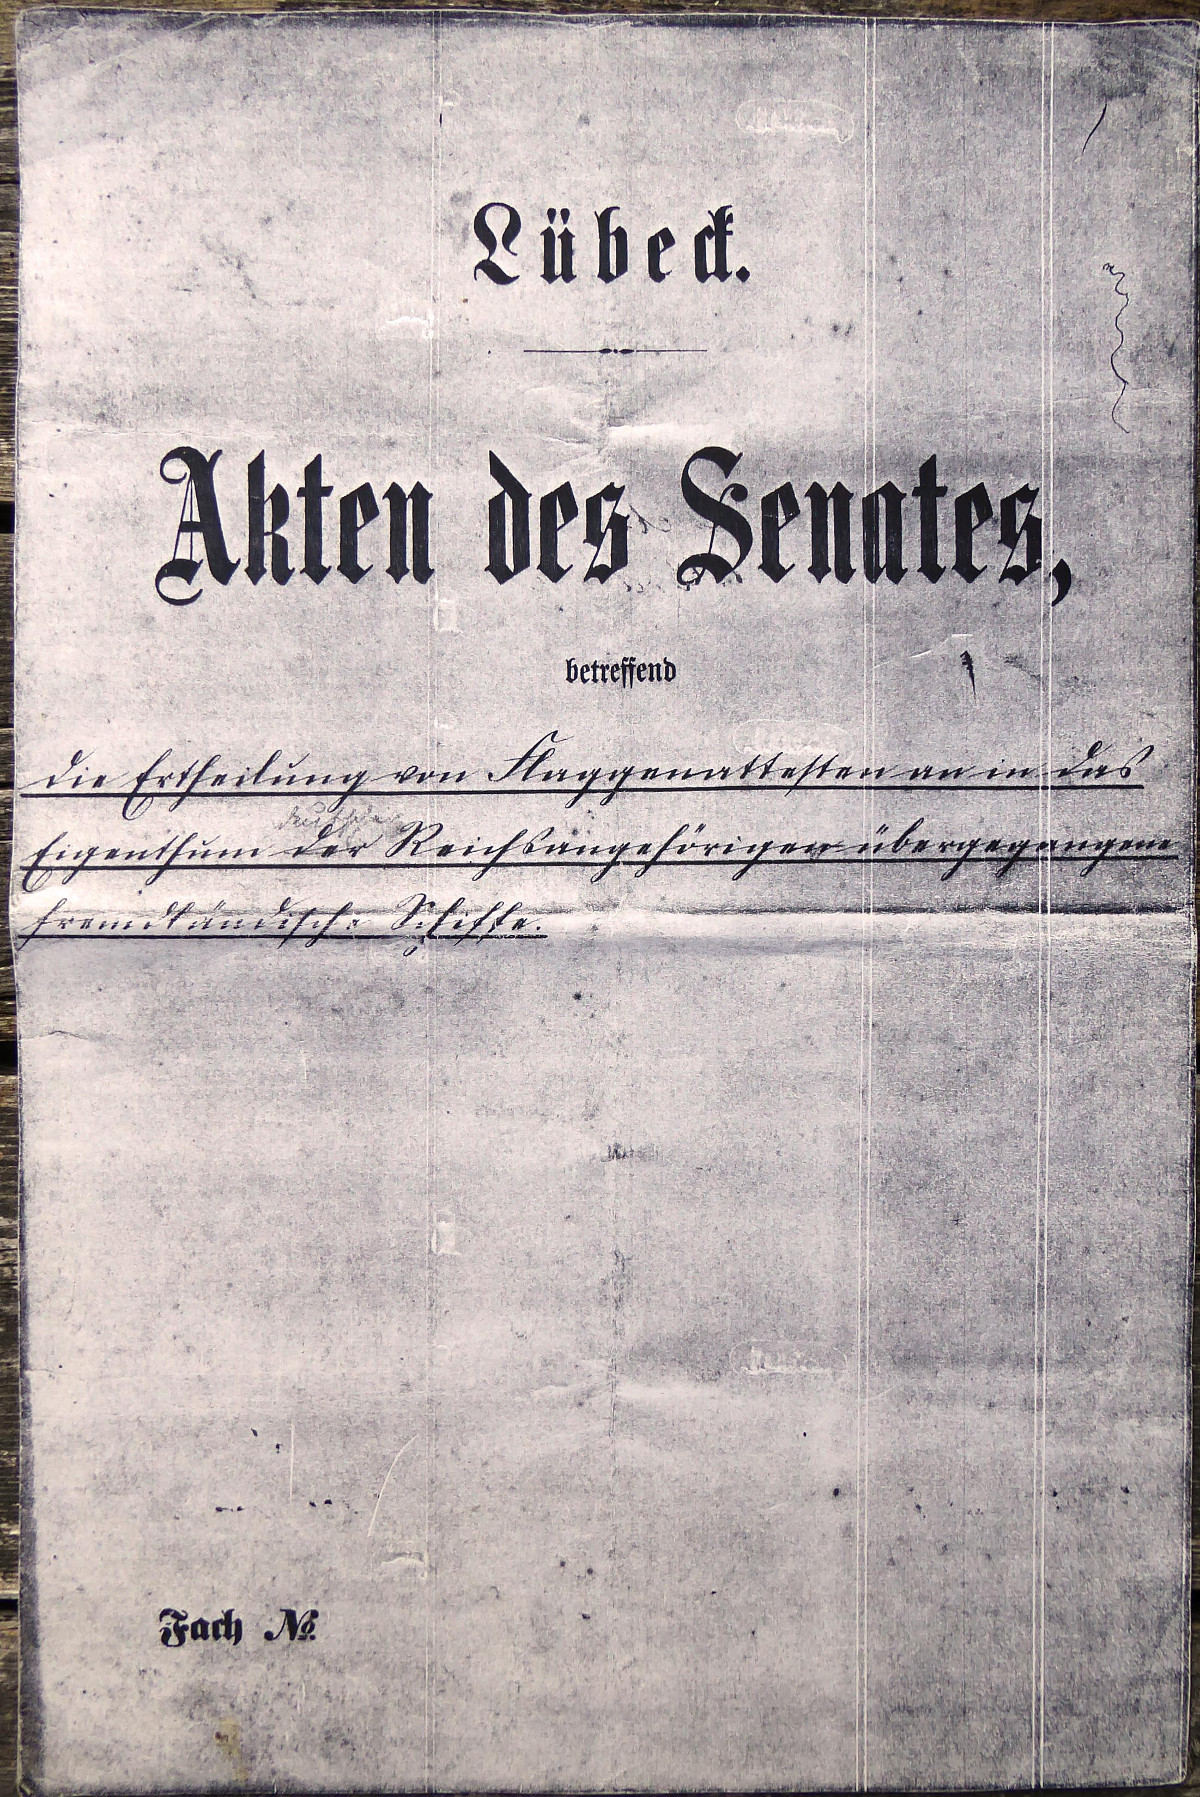 Lübeck.
Akten des Senates,
betreffend
die Ertheilung von Flaggenattesten an in das
deutscher
Eigenthum der Reichsangehörigen übergegangene
fremdländische Schiffe.
Fach №